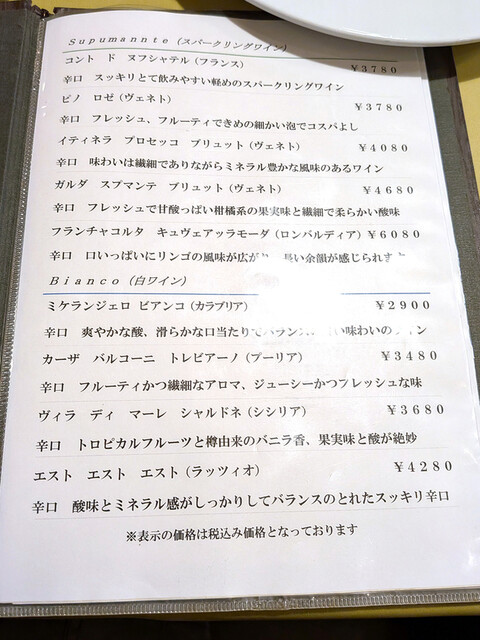 Supumannte (スパークリングワイン)
コント ド ヌフシャテル (フランス)
¥3780
辛口 スッキリとて飲みやすい軽めのスパークリングワイン
ピノ ロゼ (ヴェネト)
¥3780
辛口 フレッシュ、フルーティできめの細かい泡でコスパよし
イティネラ プロセッコ ブリュット (ヴェネト)
¥4080
辛口 味わいは繊細でありながらミネラル豊かな風味のあるワイン
ガルダ スプマンテ ブリュット (ヴェネト)
¥4680
辛口 フレッシュで甘酸っぱい柑橘系の果実味と繊細で柔らかい酸味
フランチャコルタ キュヴェアッラモーダ (ロンバルディア) ¥6080
辛口 口いっぱいにリンゴの風味が広が 長い余韻が感じられます
Bianco (白ワイン)
ミケランジェロ ビアンコ (カラブリア) ¥2900
辛口 爽やかな酸、滑らかな口当たりでバランス い味わいのワイン
カーザ バルコーニ トレビアーノ (プーリア) ¥3480
辛口 フルーティかつ繊細なアロマ、ジューシーかつフレッシュな味
ヴィラ ディ マーレ シャルドネ (シシリア) ¥3680
辛口 トロピカルフルーツと樽由来のバニラ香、果実味と酸が絶妙
エスト エスト エスト (ラッツィオ) ¥4280
辛口 酸味とミネラル感がしっかりしてバランスのとれたスッキリ辛口
※表示の価格は税込み価格となっております